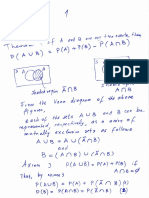 1
Theorem: if A and B are any two events, then
P(A∪B) = P(A) + P(B) - P(A∩B)
S A B S A B
Subregion Ā∩B A∩B
From the Venn diagram of the above
Figures,
Each of the sets A∪B and B can be
represented, respectively, as a union of
mutually exclusive sets as follows
A∪B = A∪(Ā∩B)
and
B = (A∩B) ∪ (Ā∩B)
Axiom 3 P(A∪B) = P(A) + P(B) if A∩B=∅
Thus, by
P(A∪B) = P(A) + P(Ā∩B)
P(B) = P(A∩B) + P(Ā∩B)